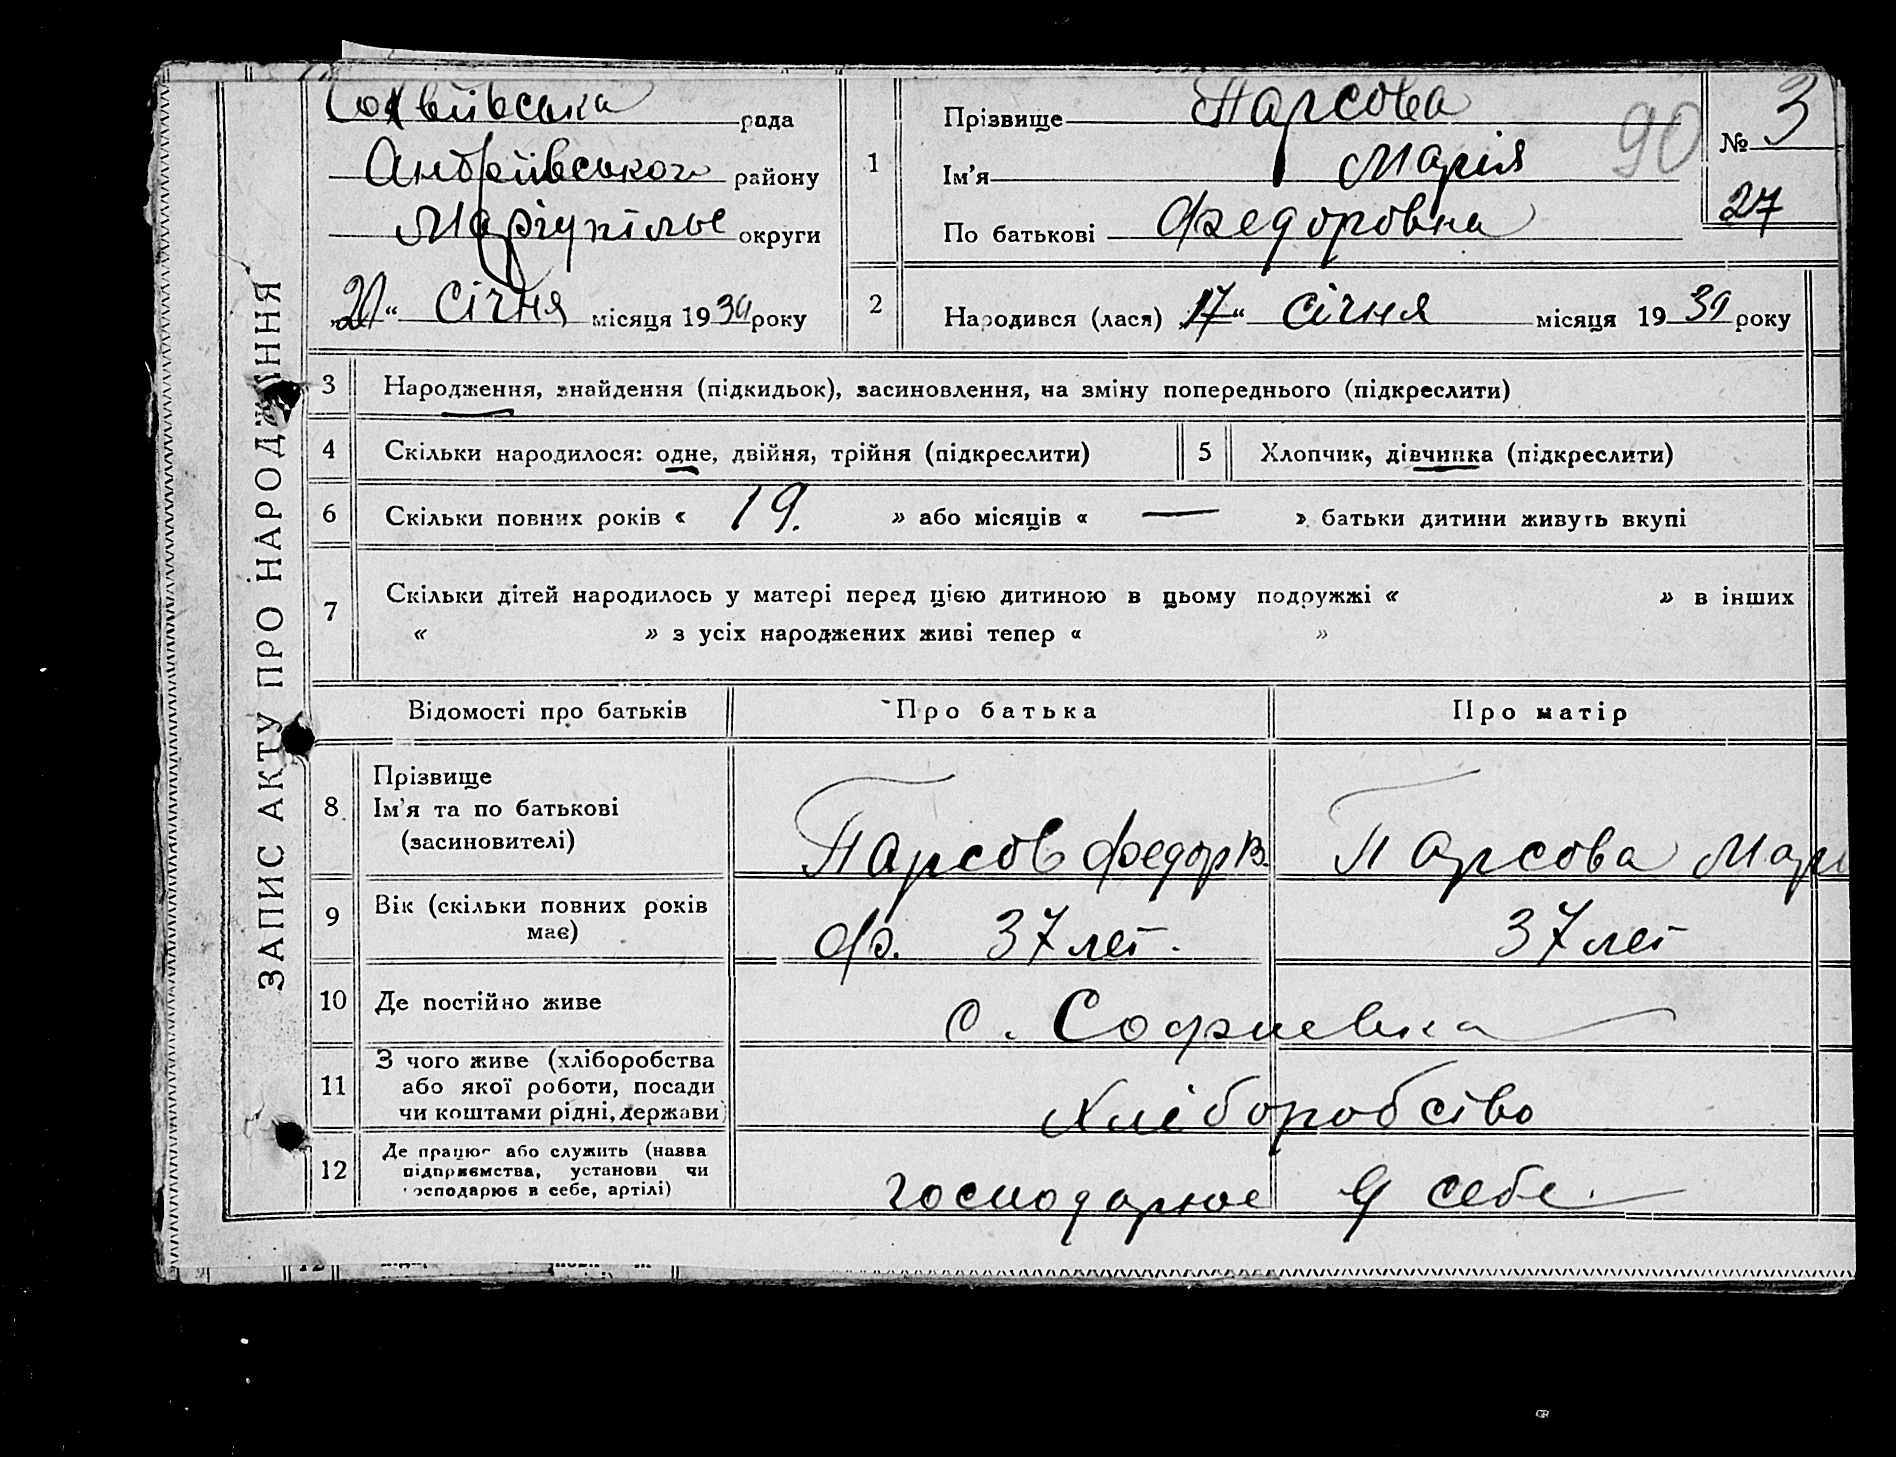 ЗАПИС АКТУ ПРО НАРОДЖЕННЯ
рада
Андріївського району
округи
Січня місяця 19 року
1
Прізвище Парсова
Ім'я Марія
По батькові Федоровна
90
№ 3
27
2
Народився (лася) „17“ січня місяця 19 року
3 Народження, знайдення (підкидьок), засиновлення, на зміну попереднього (підкреслити)
4 Скільки народилося: одне, двійня, трійня (підкреслити)
5 Хлопчик, дівчинка (підкреслити)
6 Скільки повних років « 19. » або місяців « — » батьки дитини живуть вкупі
7 Скільки дітей народилось у матері перед цією дитиною в цьому подружжі « » в інших
« » з усіх народжених живі тепер « »
Відомості про батьків
Про батька
Про матір
8 Прізвище
Ім'я та по батькові
(засиновителі)
Парсов Федор
Парсова
9 Вік (скільки повних років
має)
37 лет.
37 лет
10 Де постійно живе
с. Софиевка
11 З чого живе (хліборобства
або якої роботи, посади
чи коштами рідні, держави)
Хліборобство
12 Де працює або служить (назва
підприємства, установи чи
господарює в себе, артілі)
господарює у себе.